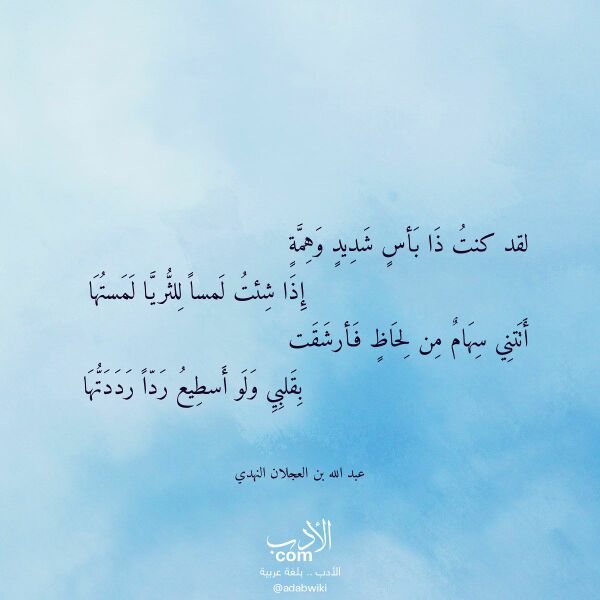 لقد كنتُ ذَا بَأسٍ شَدِيدٍ وَهِمَّةٍ
إِذَا شِئتُ لَمساً لِلثُّريَّا لَمَستُهَا
أَتَتنِي سِهَامٌ مِن لِحَاظٍ فَأرشَقَت
بِقَلبِيِ وَلَو أَسطِيعُ رَدّاً رَدَدَتُّهَا
عبد الله بن العجلان النهدي
الأدب
com
الأدب .. بلغة عربية
@adabwiki